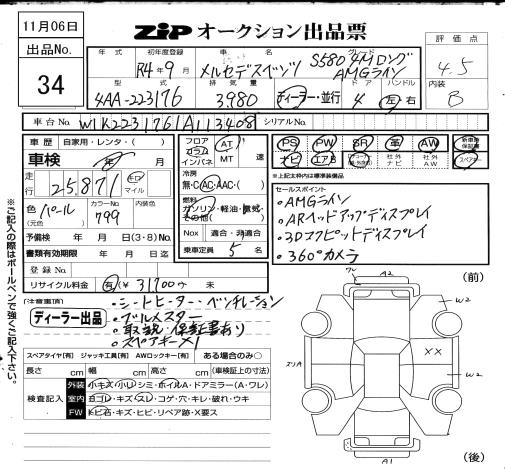 11月06日
ZIP オークション出品票
出品No.
34
年式
初年度登録
R4年9月
車名
メルセデスベンツ
グレード
S580 4Mロング
AMGライン
評価点
4.5
型式
4AA-223176
排気量
3980
ディーラー・並行
ドア
4
ハンドル
左・右
内装
B
車台No.
W1K2231761A113408
シリアルNo.
車歴
自家用・レンタ・( )
車検
年 月
走行
25,871
キロ
マイル
色
パール
(元色)
カラーNo.
799
フロア
コラム
インパネ
AT
MT
速
冷房
無・C・AC・AAC・( )
燃料
ガソリン・軽油・電気・
その他( )
Nox
適合・非適合
乗車定員
5名
PS
PW
SR
革
AW
新車時保証書
ナビ
エアB
社外ナビ
社外AW
スペアキー
※上記本枠内は標準装備品
セールスポイント
・AMGライン
・ARヘッドアップディスプレイ
・3Dコクピットディスプレイ
・360°カメラ
予備検
年 月 日(3・8)No.
書類有効期限
年 月 日迄
登録No.
リサイクル料金
有(¥ 31700 ) 未
注意事項
・シートヒーター・ベンチレーション
・ブルメスター
・取説・保証書あり
・スペアキー×1
ディーラー出品
スペアタイヤ[有] ジャッキ工具[有] AWロックキー[有] ある場合のみ○
長さ cm 幅 cm 高さ cm (車検証上の寸法)
検査記入
外装
小キズ・小リ・シミ・ホイルA・ドアミラー(A・ワレ)
室内
ヨゴレ・キズ・スレ・コゲ・穴・キレ・破れ・ウキ
FW
トビ石・キズ・ヒビ・リペア跡・X要ス
※ご記入の際はボールペンで強くご記入下さい。
(前)
A2
W2
XX
W2
A1
(後)